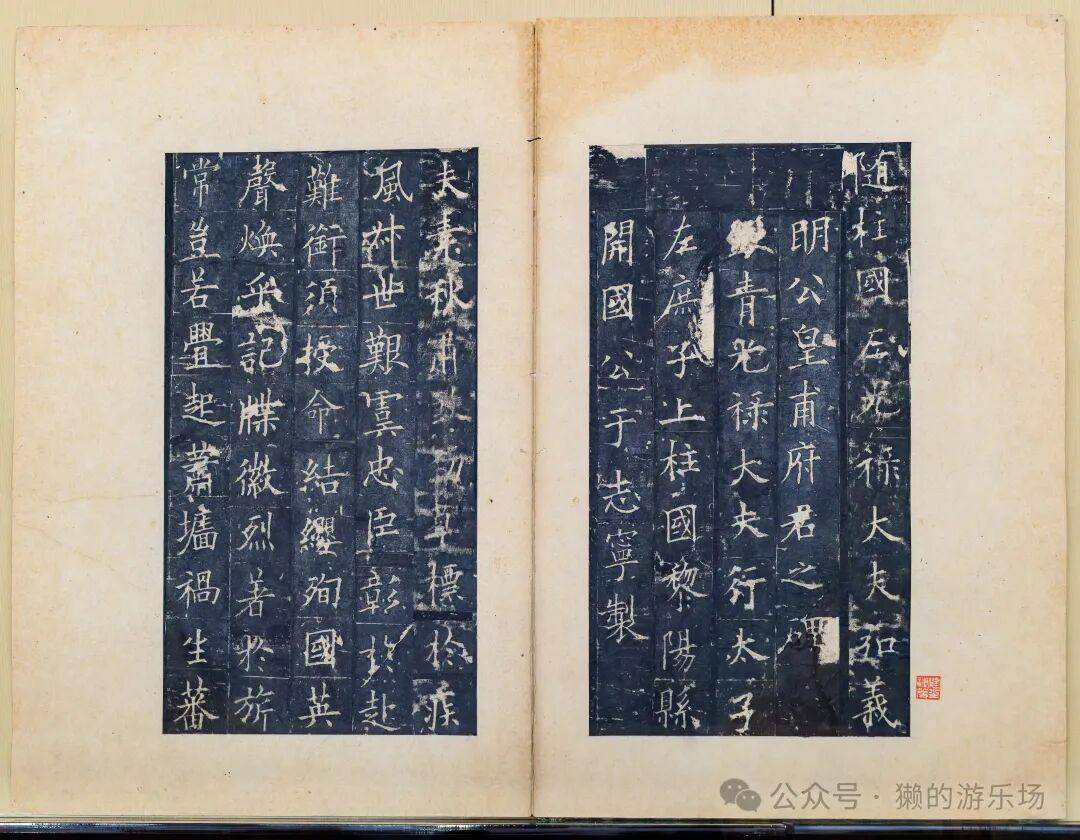 随柱國左光祿大夫弘義
明公皇甫府君之碑
青光祿大夫行太子
左庶子上柱國黎陽縣
開國公于志寧製
夫素秋肅勁草標於疾
風叔世艱虞忠臣彰於赴
難銜須授命結纓殉國英
聲煥乎記牒徽烈著於旂
常豈若釁起蕭墻禍生蕃
公众号·獭的游乐场